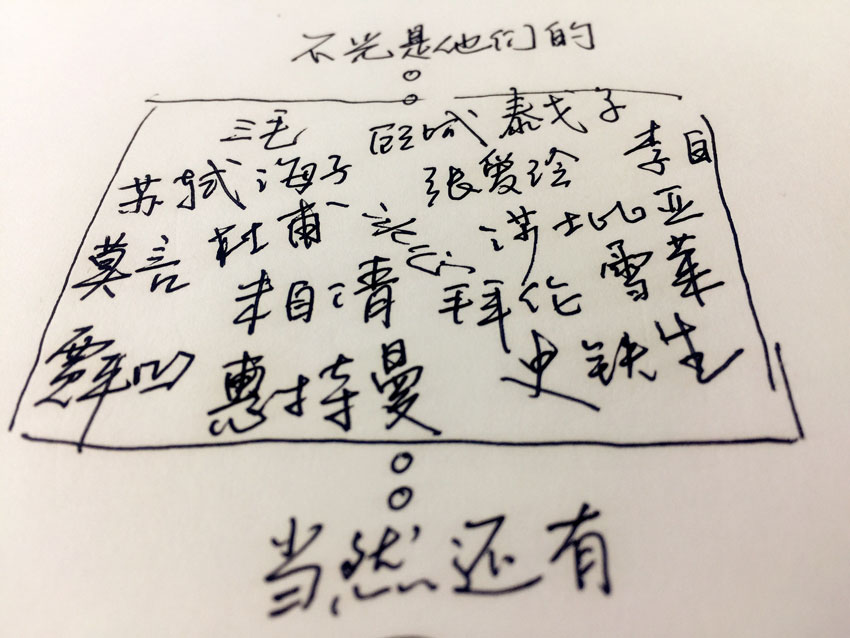 不光是他们的
三毛 泰戈尔
苏轼 海子 张爱玲 李白
莫言 杜甫 莎士比亚
朱自清 拜伦 雪莱
贾平凹 惠特曼 史铁生
当然还有